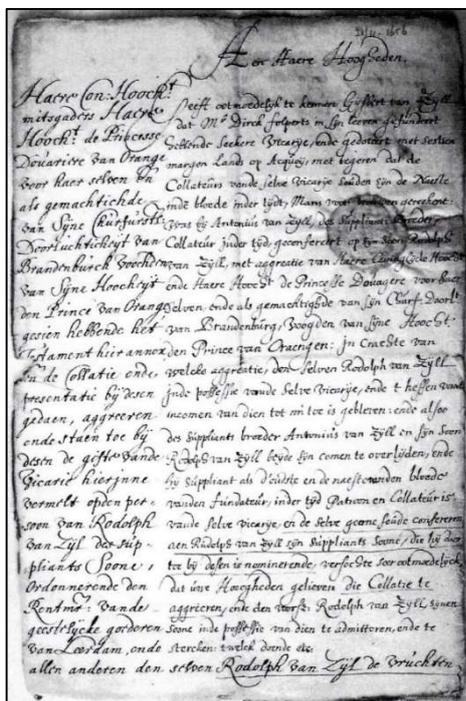 21/11-1656
Aen Haere Hoogheden.
Haere Con: Hoocht
mitsgaders Haere
Hoocht. de Princesse
Douariere van Orange
voor haer selven en
als gemachtichde
van Syne Churfursts
Doorluchticheyt van
Brandenburch voochden
van Syne Hoocheyt
den Prince van Orange
gesien hebbende het
Testament hier annex
en de Collatie ende
presentatie bij desen
gedaen, aggreeren
ende staen toe bij
desen de gifte vande
Vicarie hier inne
vermelt op den per-
soon van Rodolph
van Zijl des sup-
pliants Soone,
Ordonnerende den
Rentmr: vande
geestelijcke goederen
van Leerdam, ende
allen anderen den selven Rodolph van Zijl de vruchten
Geeft ootmoedelyk te kennen Gysbert van Zyll
dat Mr Dirck in syn leeven gefundeert
seekere Vicarye, ende gedoteert met
margen Lands op Acquoy, met begeren dat de
Collateurs vande selve Vicarye souden syn de Naeste
inde bloede inder tyd, Mans voor vrouwen gerekent:
Was by Antonius van Zyll, des Suppliants Broeder,
Collateur inder tyd, geconfereert op syn Soon Rodolph
van Zyll, met aggreatie van Haere Coninglyke Hoocht
ende Haere Hoocht de Princesse Douagere voor haer
selven, ende als gemachtigde van syn Cheurf: Doorlt
van Brandenburg, Vooghden van syne Hoocht
den Prince van Oraengen: in Crachte van
welcke aggreatie, den selven Rodolph van Zyll
inde possessie vande selve Vicarye, ende t heffen vande
incomen van dien tot nu toe is gebleven: ende alsoo
des Suppliants broeder Antonius van Zyll en syn Soon
Rodolph van Zyll beyde syn comen te overlyden, ende
hy Suppliant als d'oudste en de naeste vanden bloede
vanden fundateur, inder tyd Patroon en Collateur is
vande selve vicarye, en de selve geerne soude confereren
aen Rudolph van Zyll syn Suppliants Soone, die hy daer
toe by desen is nominerende, versochte seer ootmoedelyck
dat uwe Hoogheden gelieven die Collatie te
aggrieren, ende den voors: Rodolph van Zyll synen
Soone inde possessie van dien te admitteren, ende te
stercken: twelck doende etc: